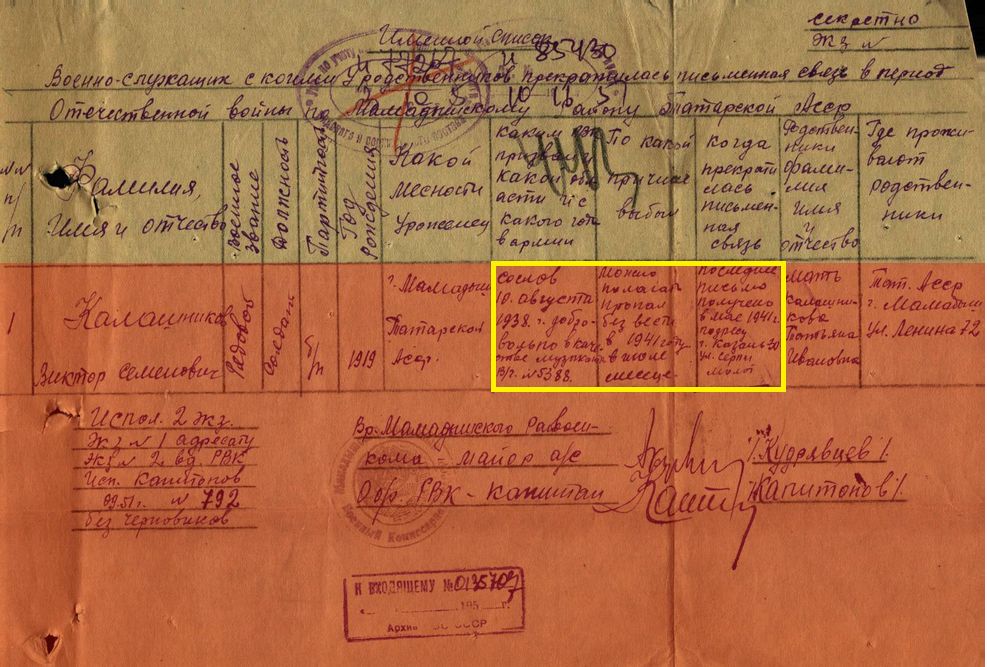 секретно
Экз №
Именной список
№ 85430
Военно-служащих с коими у родственников прекратилась письменная связь в период
Отечественной войны по Мамадышскому району Татарской Асср
№№ п/п
Фамилия,
Имя и отчество
Военное звание
Должность
Партийность
Год рождения
Какой
месности
Урожинец
Каким
призван
какой
асти
какого
в армии
По какой
причине
выбыл
когда
прекрати
лась
письмен-
ная
связь
Родствен-
ники
фами-
лия
имя
и
отчество
Где прожи-
вают
родствен-
ники
1
Калашников
Виктор Семенович
Рядовой
Солдат
б/п
1919
г. Мамадыш
Татарской
Асср.
10. августа
1938. г. добро-
вольно в каче-
в/ч. №5388.
Можно
полагать
пропал
без вести
в 1941 году
в июле
месяце-
последнее
письмо
получено
в мае 1941г.
г. Казань-30
ул. Серп и
молот
Мать
Калашни-
кова
Татьяна
Ивановна
Тат. Асср
г. Мамадыш
ул. Ленина 72
Испол. 2 экз.
Экз № 1 адресату
Экз № 2 вд. РВК
Исп. Капитонов
№ 792
без черновиков
Вр. Мамадышского Райвоен-
кома майор а/с
РВК - капитан
/Кудрявцев/
/Капитонов/
К ВХОДЯЩЕМУ №
195
Архив СССР